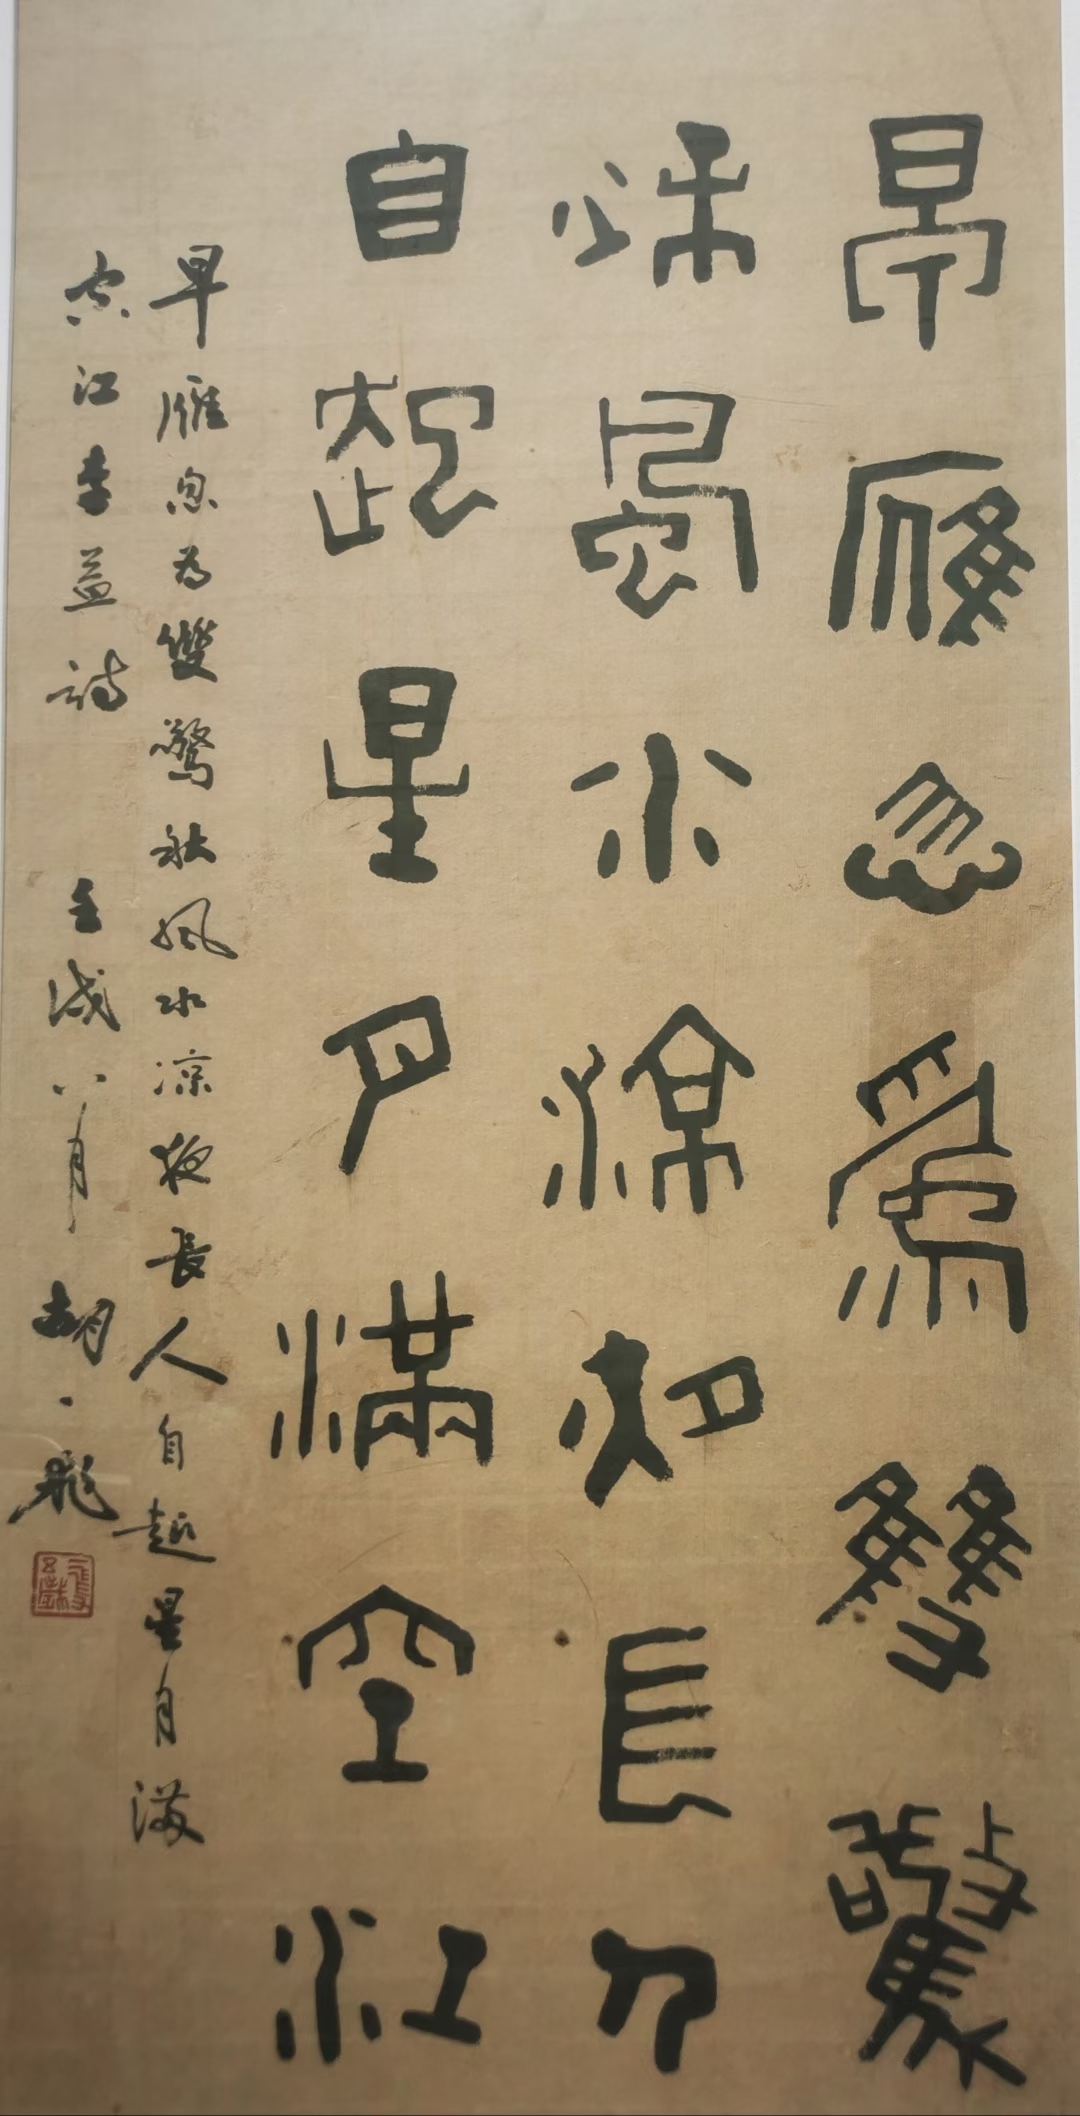 早雁忽爲雙驚
秋風水涼夜長人
自起星月滿空江
早雁忽为雙驚秋風水凉夜長人自起星月满
空江李益詩 壬戌八月 胡一飛